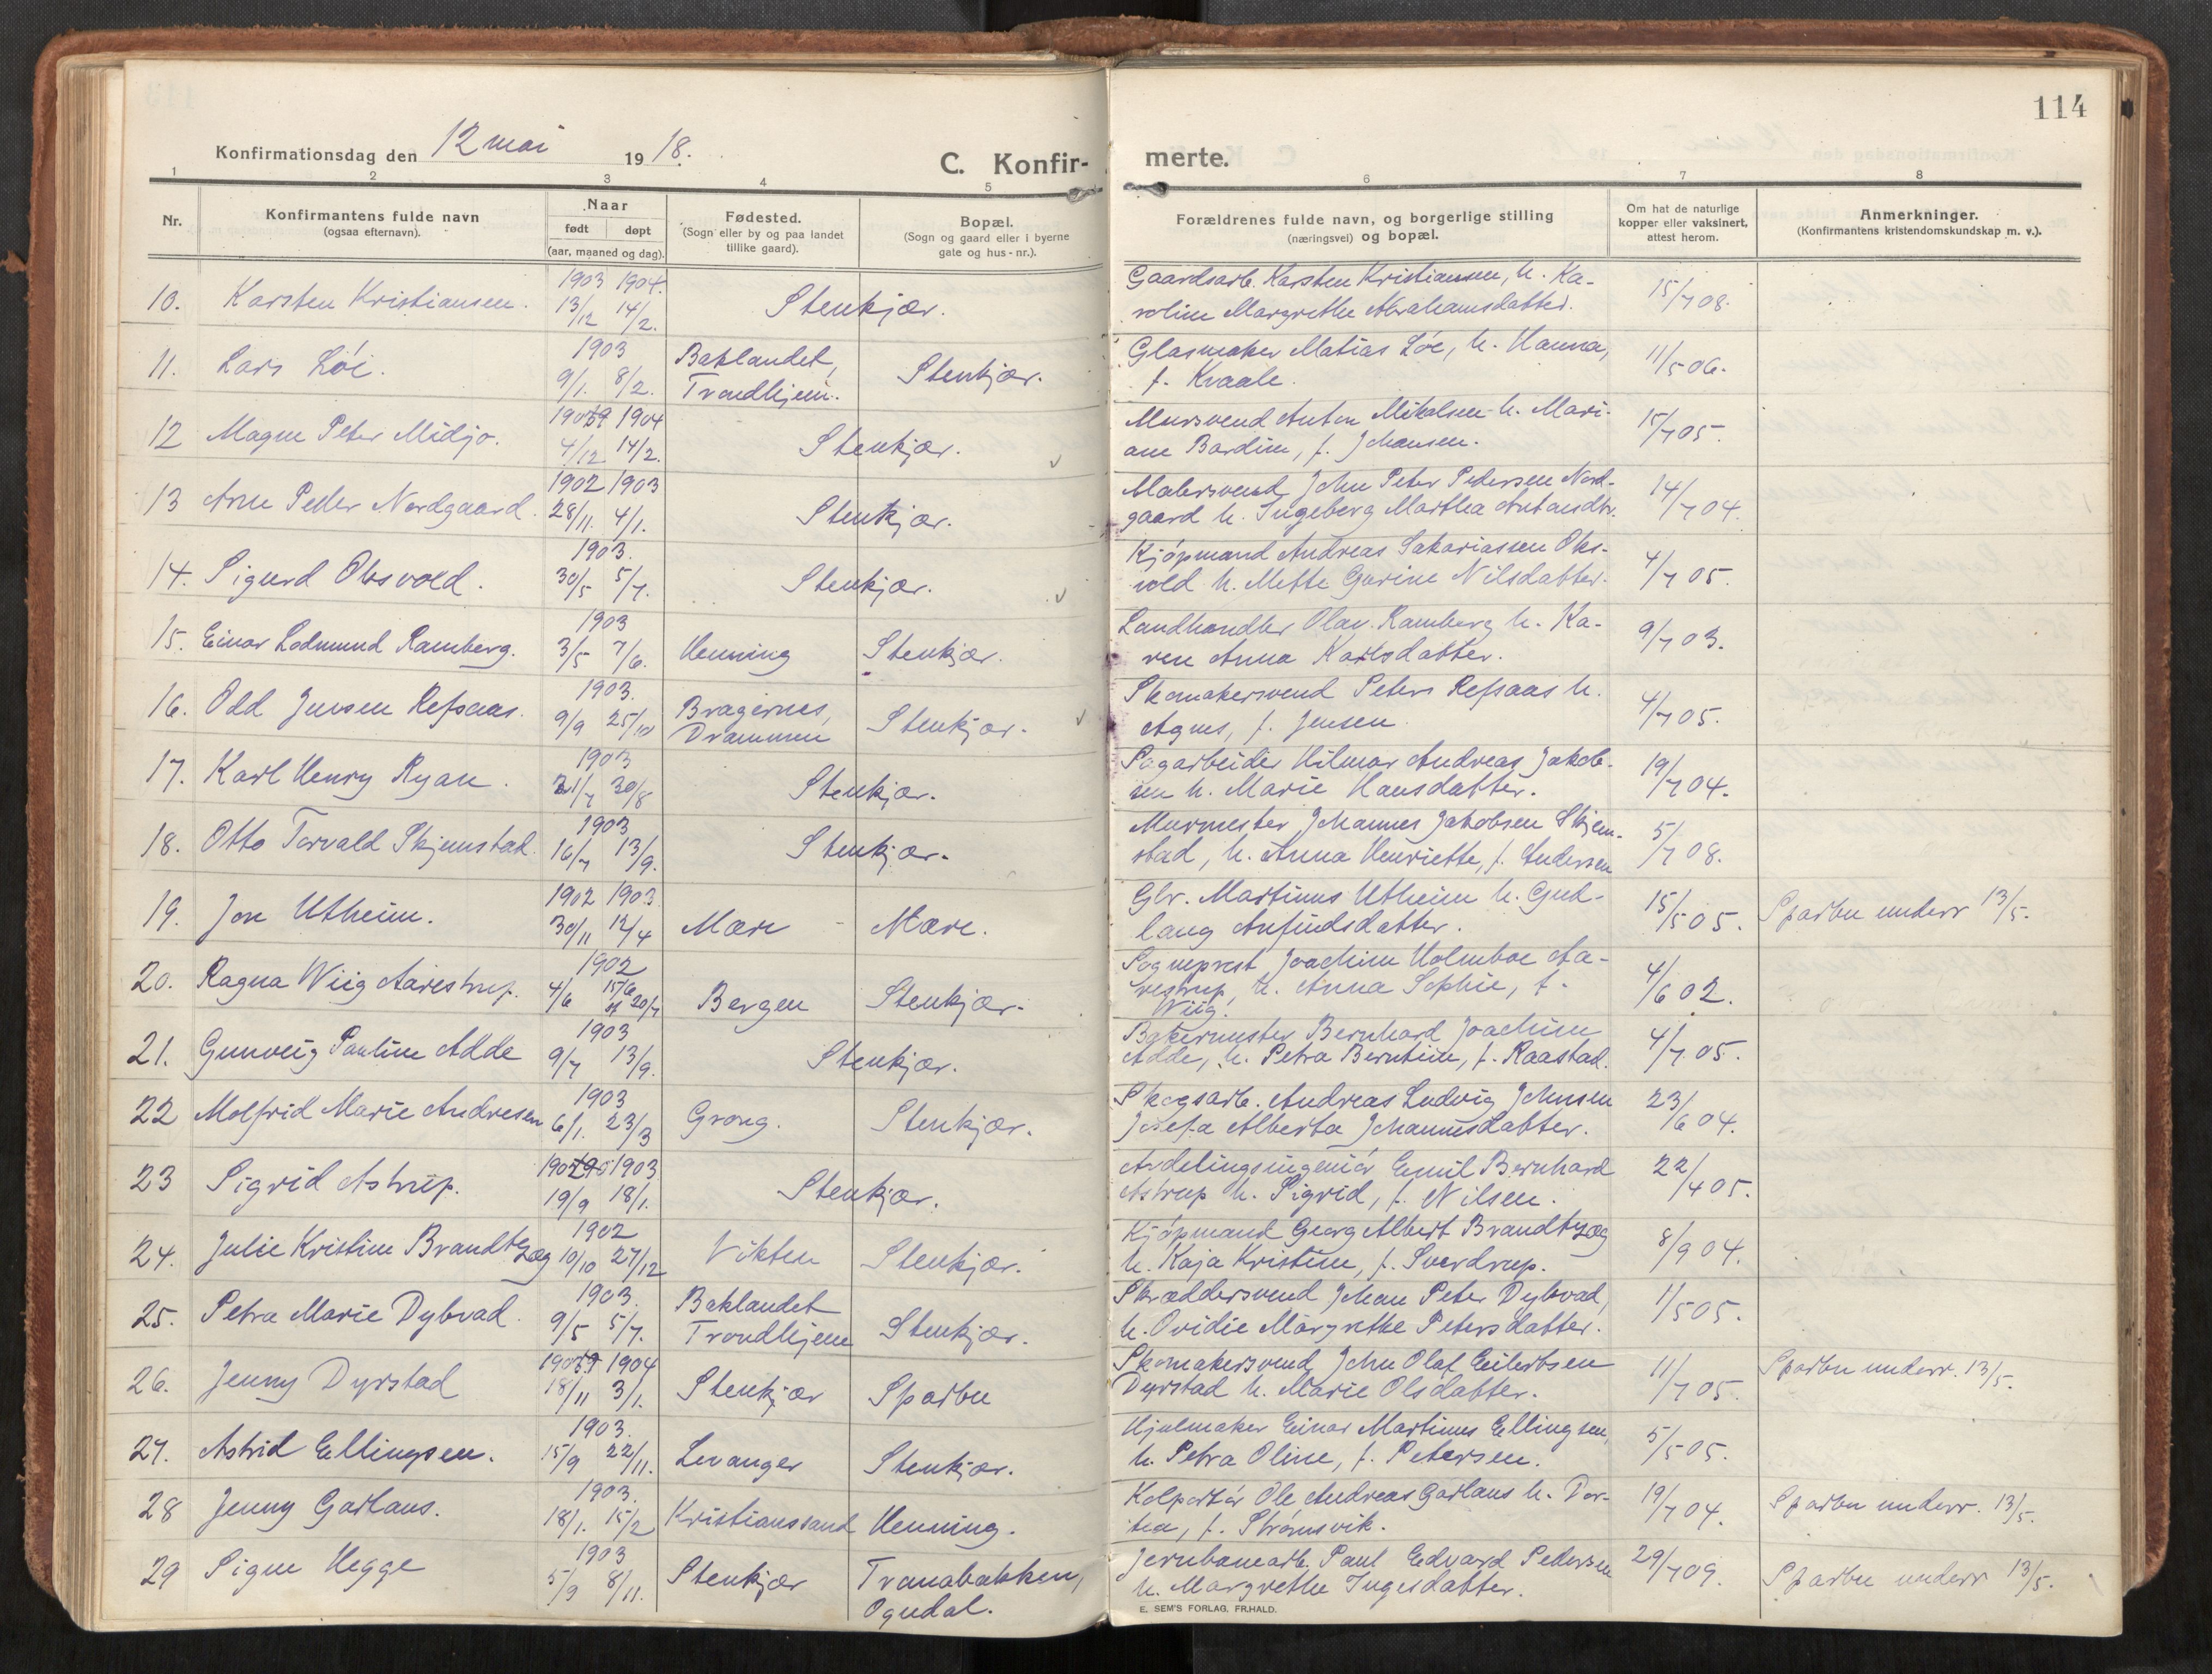 114
Konfirmationsdag den 12 mai 1918.
C. Konfir-
merte.
1 2 3 4 5 6 7 8
Nr.
Konfirmantens fulde navn
(ogsaa efternavn).
Naar
født døpt
(aar, maaned og dag).
Fødested.
(Sogn eller by og paa landet
tillike gaard).
Bopæl.
(Sogn og gaard eller i byerne
gate og hus-nr.).
Forældrenes fulde navn, og borgerlige stilling
(næringsvei) og bopæl.
Om hat de naturlige
kopper eller vaksinert,
attest herom.
Anmerkninger.
(Konfirmantens kristendomskundskap m. v.).
1903 1904.
10. Karsten Kristiansen. 13/12 14/2. Stenkjær.
Gaardsarb. Karsten Kristiansen, h. Ka-
roline Margrethe Abrahamsdatter. 15/7 08.
1903
11. Lars Löe. 9/1. 8/2. Baklandet,
Trondhjem. Stenkjær.
Glasmaker Matias Löe, h. Hanna,
f. Kvaale. 11/5 06.
1904
12 Magne Peter Midjo. 4/12 14/2. Stenkjær.
Mursvend Anton Mikalsen h. Mari-
ane Bardine, f. Johansen. 15/7 05.
1902 1903
13 Arne Peder Nordgaard. 28/11. 4/1. Stenkjær.
Malersvend John Peter Pedersen Nord-
gaard h. Ingeborg Martha Antonsdtr. 14/7 04.
1903.
14. Sigurd Oksvold. 30/5 5/7. Stenkjær.
Kjöpmand Andreas Sakariassen Oks-
vold h. Mette Gurine Nilsdatter. 4/7 05.
1903
15. Einar Lodmund Ramberg. 3/5 7/6. Henning Stenkjær.
Landhandler Olav Ramberg h. Ka-
ren Anna Karlsdatter. 9/7 03.
1903.
16. Odd Jensen Refsaas. 9/9 25/10 Bragernes,
Drammen Stenkjær.
Skomakersvend Peters Refsaas h.
Agnes, f. Jensen. 4/7 05.
1903
17. Karl Henry Ryan. 21/7 30/8 Stenkjær.
Sagarbeider Hilmar Andreas Jakob-
sen h. Marie Hansdatter. 19/7 04.
1903
18. Otto Torvald Skjemstad. 16/7 13/9. Stenkjær.
Murmester Johannes Jakobsen Skjem-
stad, h. Anna Henriette, f. Andersen 5/7 08.
1902 1903.
19. Jon Utheim. 30/11 12/4 Mære - Mære.
Gbr. Martinus Utheim h. Gud-
laug Anfindsdatter. 15/5 05. Sparbu underr 13/5.
1902
20. Ragna Wiig Aarestrup. 4/6 15/6 20/7 Bergen Stenkjær.
Sogneprest Joachim Holmboe Aa-
restrup, h. Anna Sophie, f.
Wiig. 4/6 02.
1903
21. Gunveig Pauline Adde 9/7 13/9. Stenkjær.
Bakermester Bernhard Joachim
Adde, h. Petra Berntine, f. Raastad. 4/7 05.
1903
22 Molfrid Marie Andresen 6/1. 23/3 Grong. Stenkjær.
Skogsarb. Andreas Ludvig Johnsen
Josefa Alberta Johannesdatter. 23/6 04.
1903
23 Sigrid Astrup. 19/9 18/1. Stenkjær.
Avdelingsingeniör Emil Bernhard
Astrup h. Sigrid, f. Nilsen. 22/4 05.
1902
24. Julie Kristine Brandtzæg 10/10 27/12 Vikten Stenkjær.
Kjöpmand Georg Albert Brandtzæg
h. Kaja Kristine, f. Sverdrup. 8/9 04.
1903.
25. Petra Marie Dybvad. 9/5 5/7. Baklandet
Trondhjem Stenkjær.
Skræddersvend Johan Peter Dybvad,
h. Ovidie Margrethe Petersdatter. 1/5 05.
1904
26. Jenny Dyrstad 18/11 3/1. Stenkjær Sparbu
Skomakersvend John Olaf Eilertsen
Dyrstad h. Marie Olsdatter. 11/7 05. Sparbu underr. 13/5.
1903.
27. Astrid Ellingsen. 15/9 22/11. Levanger Stenkjær.
Hjulmaker Einar Martinus Ellingsen,
h. Petra Oline, f. Petersen. 5/5 05.
1903.
28 Jenny Garlaus. 18/1. 15/2 Kristianssand Henning.
Kolportör Ole Andreas Garlaus h. Dor-
tea, f. Strömsvik. 19/7 04. Sparbu underr. 13/5.
1903
29 Signe Hegge 5/9 8/11. Stenkjær Tranabakken,
Ogndal.
Jernbanearb. Paul Edvard Pedersen
h. Margrethe Ingesdatter. 29/7 09. Sparbu underr 13/5.
E. SEM'S FORLAG, FR.HALD.